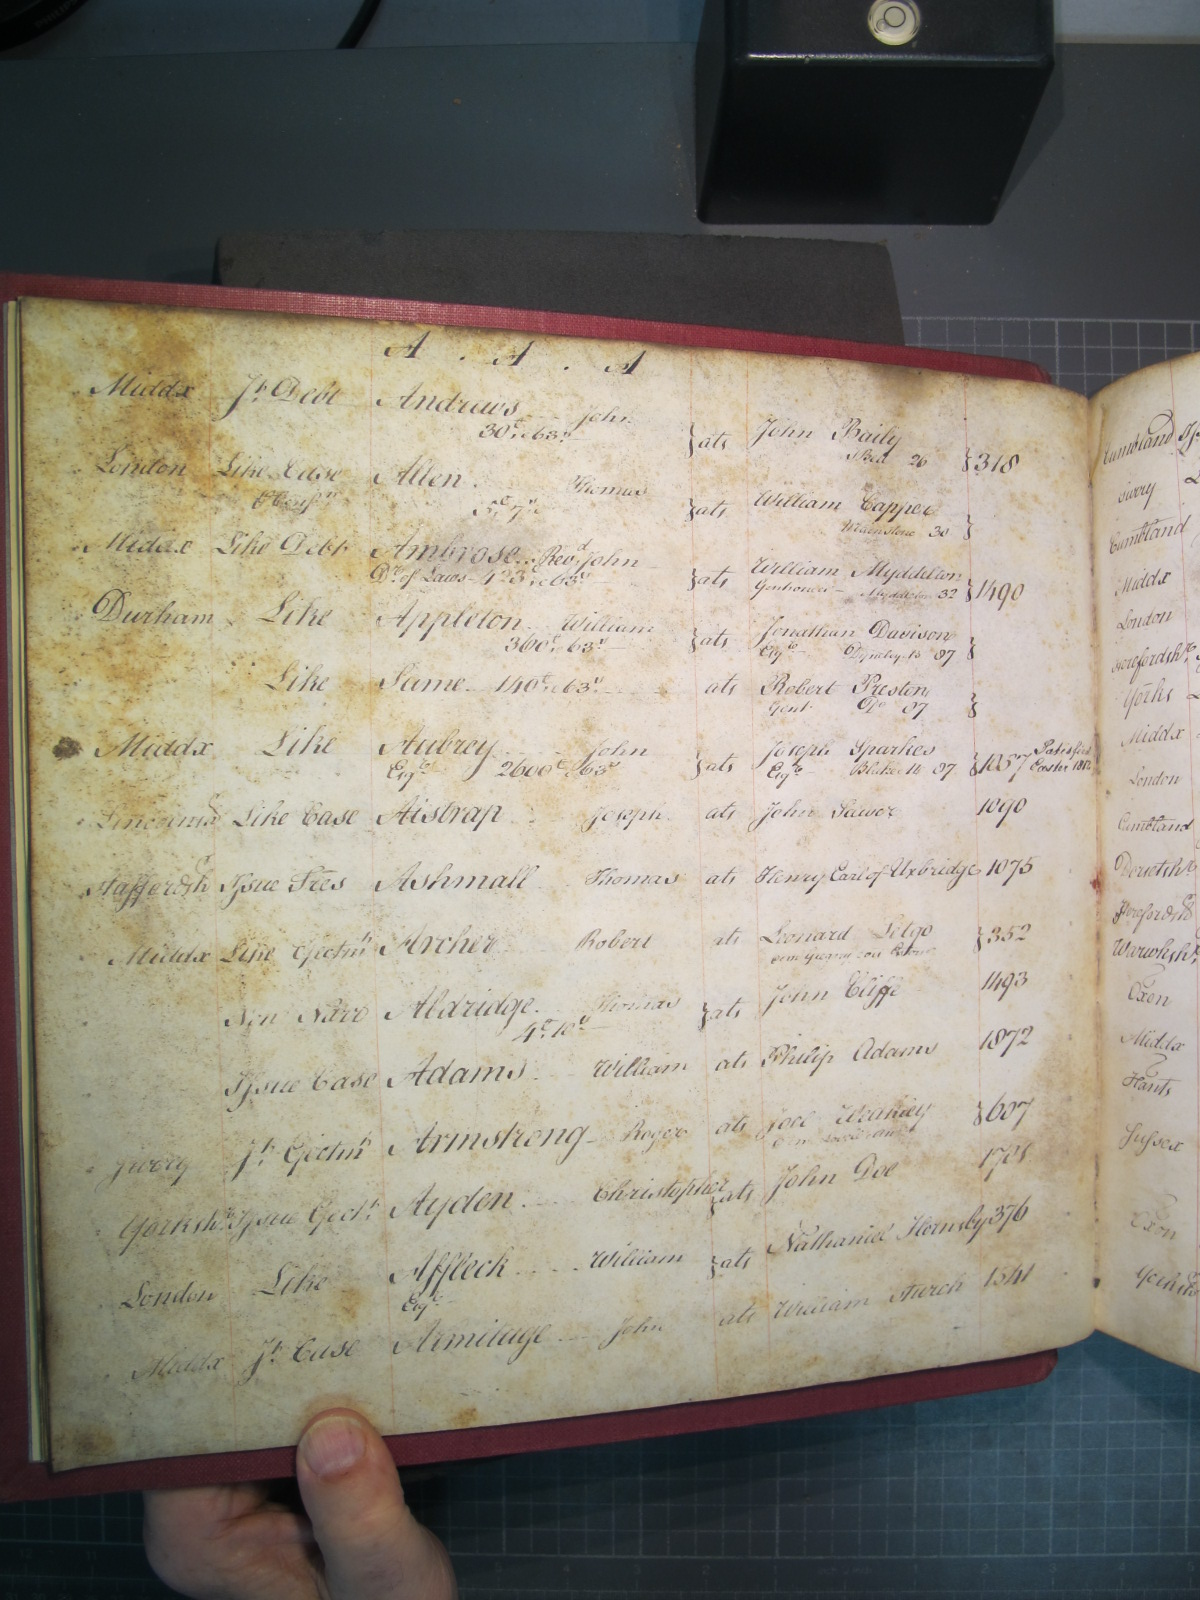 A . A . A
Middx Jt. Debt Andrews John
30£ & 63s } ats John Baily } 318
26
London Like Case Allen Thomas
5£ 7s } ats William Capper }
30
Middx Like Debt Ambrose Revd. John
Dr. of Laws 423 & 63s } ats William Myddelton } 1490
Myddelton 32
Durham Like Appleton William
360£ & 63s } ats Jonathan Davison }
Esqre 87
Like Same 140£ & 63s ats Robert Preston }
Gent. Do 87
Middx Like Aubrey John
Esqre 2600£ & 63s } ats Joseph Sparkes } 1057 Satisfied
Esqre Blake 18 87 Easter 1812
Like Case Aistrap Joseph ats John Sawer 1090
Staffordsh Issue Tres Ashmall Thomas ats Henry Earl of Uxbridge 1075
Middx Like Ejectmt Archer Robert ats Leonard } 352
Non Narr Aldridge Thomas John Cliffe 1493
4£ 10s } ats
Issue Case Adams William ats Philip Adams 1872
Jt. Ejectmt Armstrong Roger ats } 607
Yorksh. Issue Ejectt. Ayden Christopher } ats John Doe
London Like Affleck William } ats Nathaniel Hornsby 376
Esqre
Middx Jt. Case Armitage John ats William Sturch 1541
Cumbland
Surry
Cumbland
Middx
London
Herefordsh.
Yorks
Middx
London
Cumbland
Dorsetsh.
Warwksh.
Oxon
Middx
Hants
Sussex
Oxon